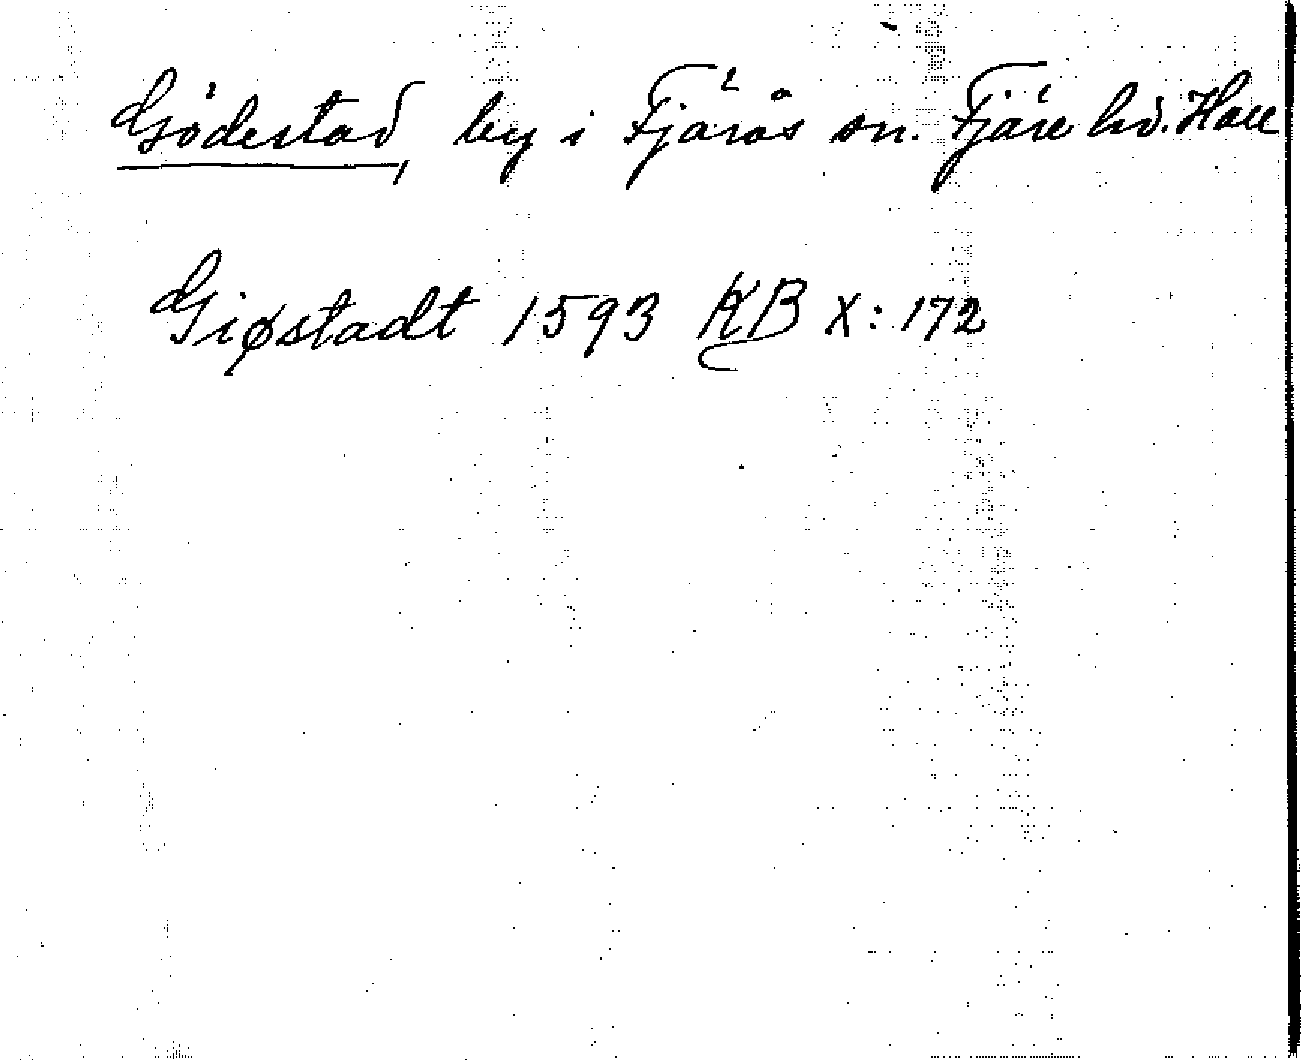 Gödestad, by i Fjärås sn. Fjäre hd. Hall
Giøstadt 1593 KB X: 172